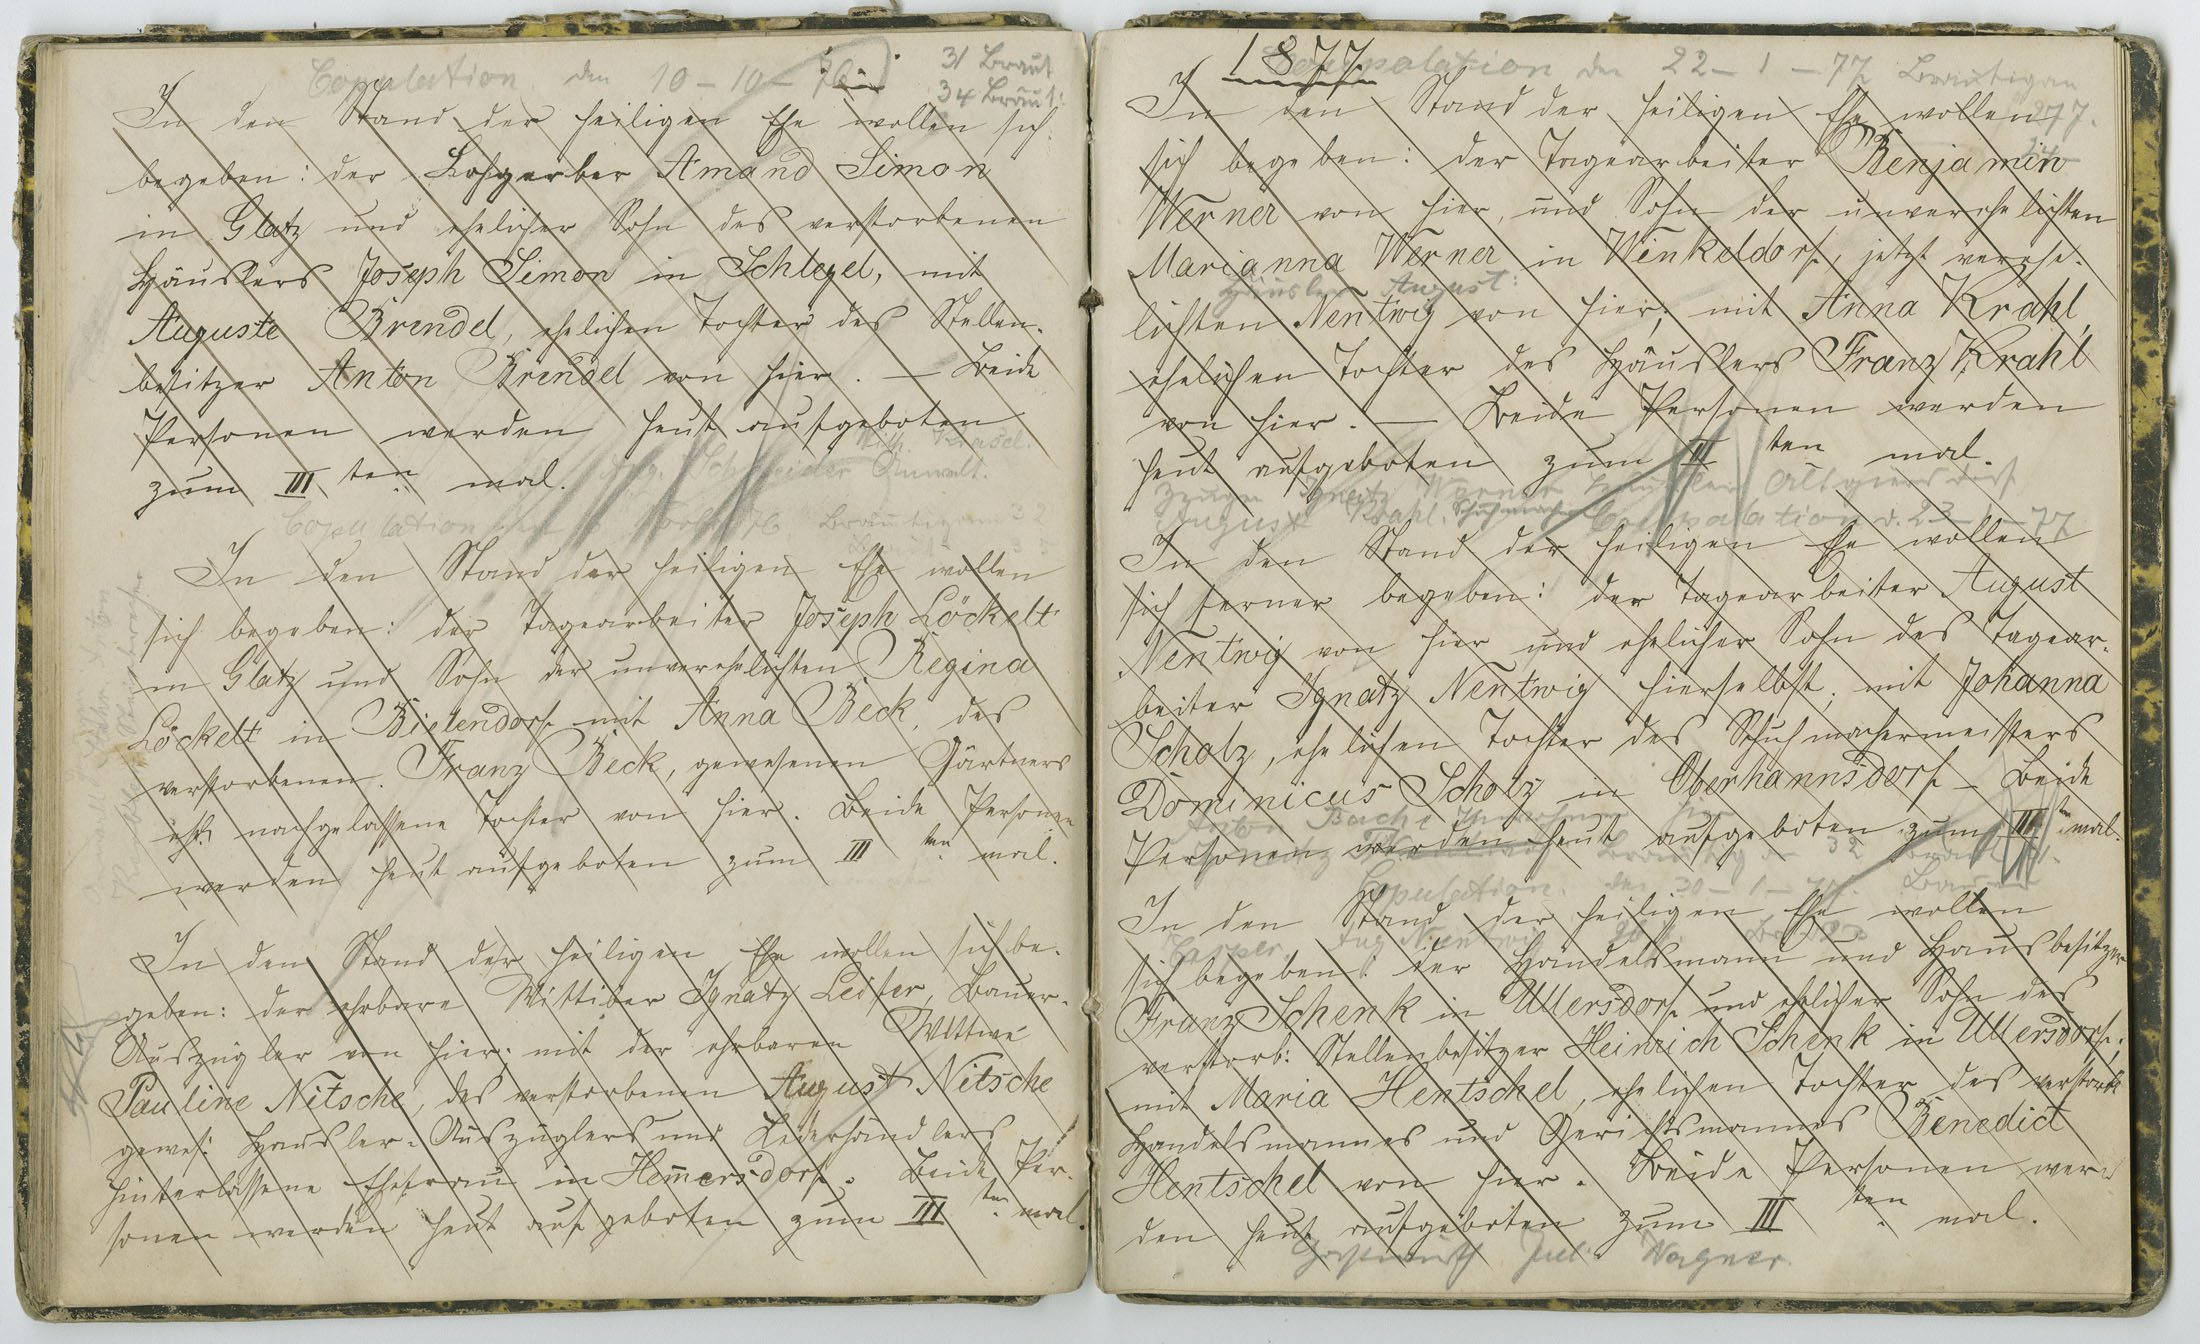 Copulation den 10-10-76. 31 Braut
34 Bräut:
In den Stand der heiligen Ehe wollen sich
begeben: der Lohgerber Amand Simon
in Glatz und ehelicher Sohn des verstorbenen
Häuslers Joseph Simon in Schlegel, mit
Auguste Brendel, ehelichen Tochter des Stellen-
besitzer Anton Brendel von hier. — Beide
Personen werden heut aufgeboten
zum III ten mal.
Aug. Schneider Anwalt.
Copulation den Bräutigam 32
In den Stand der heiligen Ehe wollen
sich begeben: der Tagearbeiter Joseph Löckelt
in Glatz und Sohn der unverehelichten Regina
Löckelt in Bielendorf mit Anna Beck, des
verstorbenen Franz Beck, gewesenen Gärtners
ehl. nachgelassene Tochter von hier. Beide Personen
werden heut aufgeboten zum III ten mal.
In den Stand der heiligen Ehe wollen sich be-
geben: der ehrbare Wittiber Ignatz Leifer, Bauer-
Auszügler von hier; mit der ehrbaren Wittwe
Pauline Nitsche, des verstorbenen August Nitsche
gewes: Häusler-Auszüglers und Lederhändlers
hinterlassene Ehefrau in Hem̄ersdorf. Beide Per-
sonen werden heut aufgeboten zum III ten mal.
1877.
Copulation den 22-1-77 Bräutigam
27
In den Stand der heiligen Ehe wollen
sich begeben: der Tagearbeiter Benjamin
Werner von hier, und Sohn der unverehelichten
Marianna Werner in Winkeldorf, jetzt verehe-
Häusler August:
lichten Nentwig von hier; mit Anna Krahl,
ehelichen Tochter des Häuslers Franz Krahl
von hier. — Beide Personen werden
heut aufgeboten zum III ten mal.
Zeugen Ignatz Werner Häusler Altgersdorf
August Krahl, Schuhmacher Copulation d. 23-1-77
In den Stand der heiligen Ehe wollen
sich ferner begeben: der Tagearbeiter August
Nentwig von hier und ehelicher Sohn des Tagear-
beiter Ignatz Nentwig hierselbst; mit Johanna
Scholz, ehelichen Tochter des Schuhmachermeisters
Dominicus Scholz in Oberhannsdorf — Beide
Anton Bache hier
Personen werden heut aufgeboten zum III ten mal.
32
Copulation. den 30-1-77.
In den Stand der heiligen Ehe wollen
Aug Nentwig
sich begeben: der Handelsmann und Hausbesitzer
Franz Schenk in Ullersdorf und ehelicher Sohn des
verstorb: Stellenbesitzer Heinrich Schenk in Ullersdorf;
mit Maria Hentschel, ehelichen Tochter des verstorb:
Handelsmannes und Gerichtsmannes Benedict
Hentschel von hier. Beide Personen wer-
den heut aufgeboten zum III ten mal.
Gastwirth Jul: Wagner.